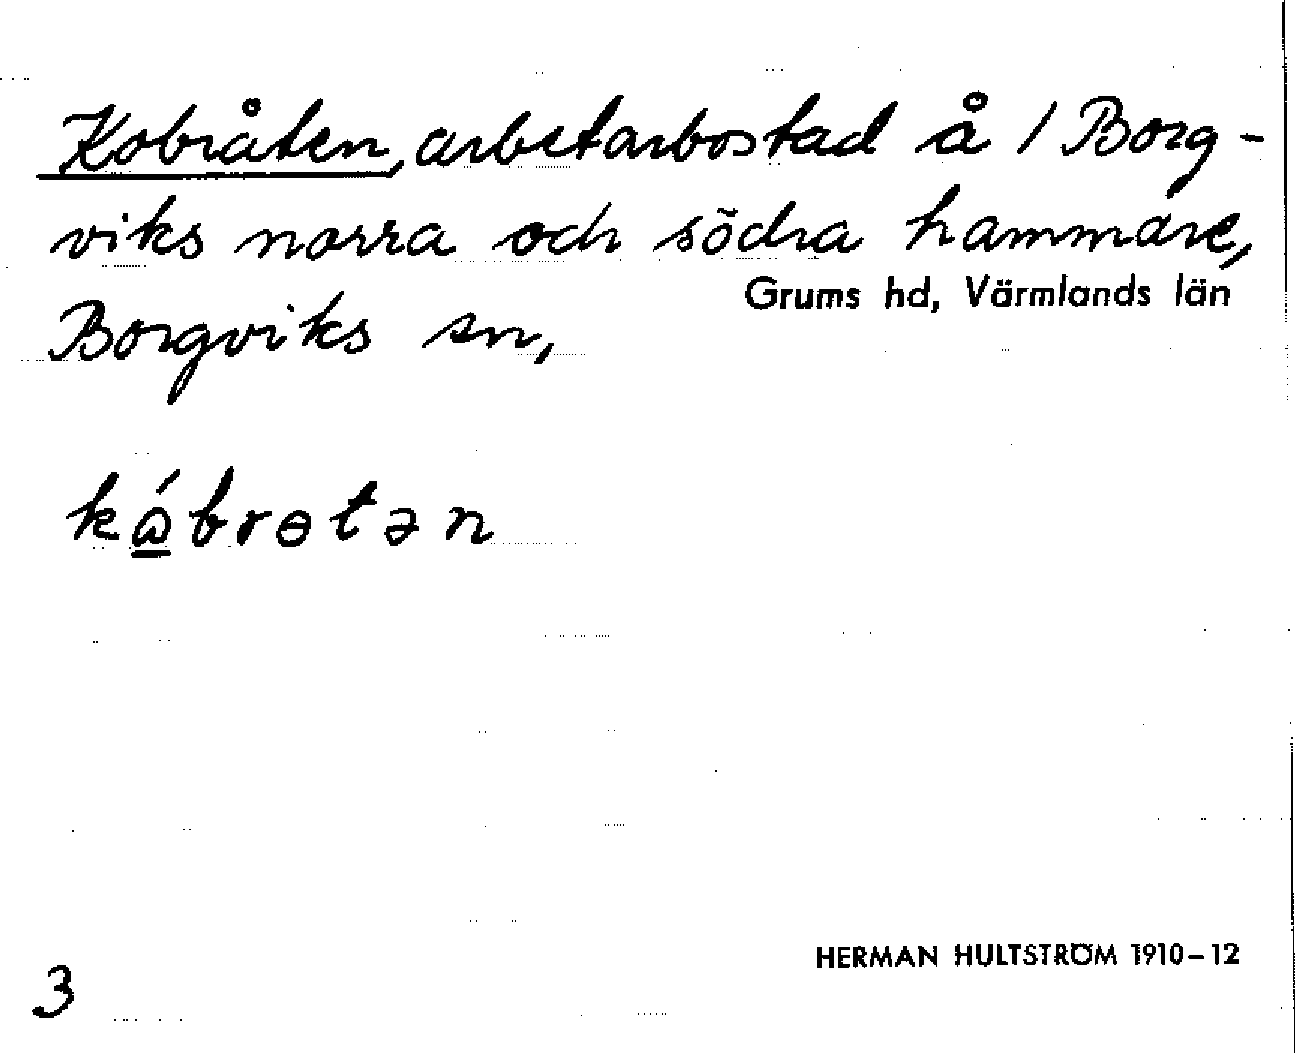 Kobråten, arbetarbostad å 1 Borg-
viks norra och södra hammare,
Grums hd, Värmlands län
Borgviks sn,
kώ̲brɵtən
3
HERMAN HULTSTRÖM 1910–12